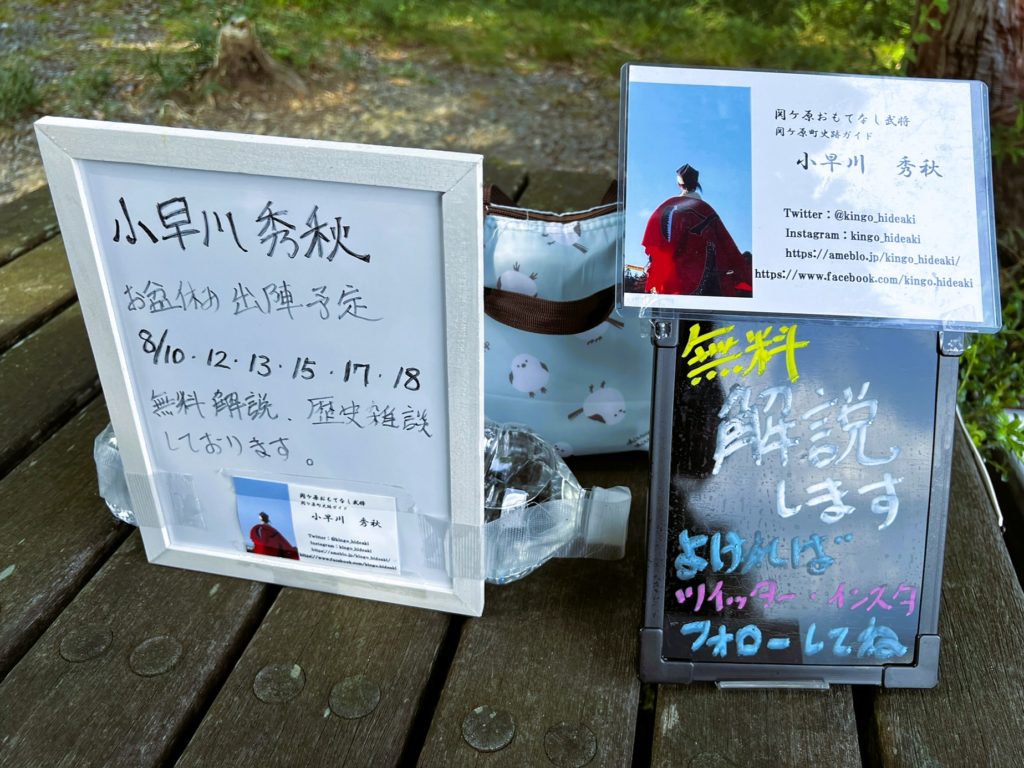 小早川 秀秋
お盆休み 出陣予定
8/10・12・13・15・17・18
無料解説、歴史雑談
しております。
関ケ原おもてなし武将
関ケ原町史跡ガイド
小早川 秀秋
Twitter：@kingo_hideaki
Instagram：kingo_hideaki
https://ameblo.jp/kingo_hideaki/
https://www.facebook.com/kingo.hideaki
関ケ原おもてなし武将
関ケ原町史跡ガイド
小早川 秀秋
Twitter：@kingo_hideaki
Instagram：kingo_hideaki
https://ameblo.jp/kingo_hideaki/
https://www.facebook.com/kingo.hideaki
無料
解説
します
よければ
ツイッター・インスタ
フォローしてね